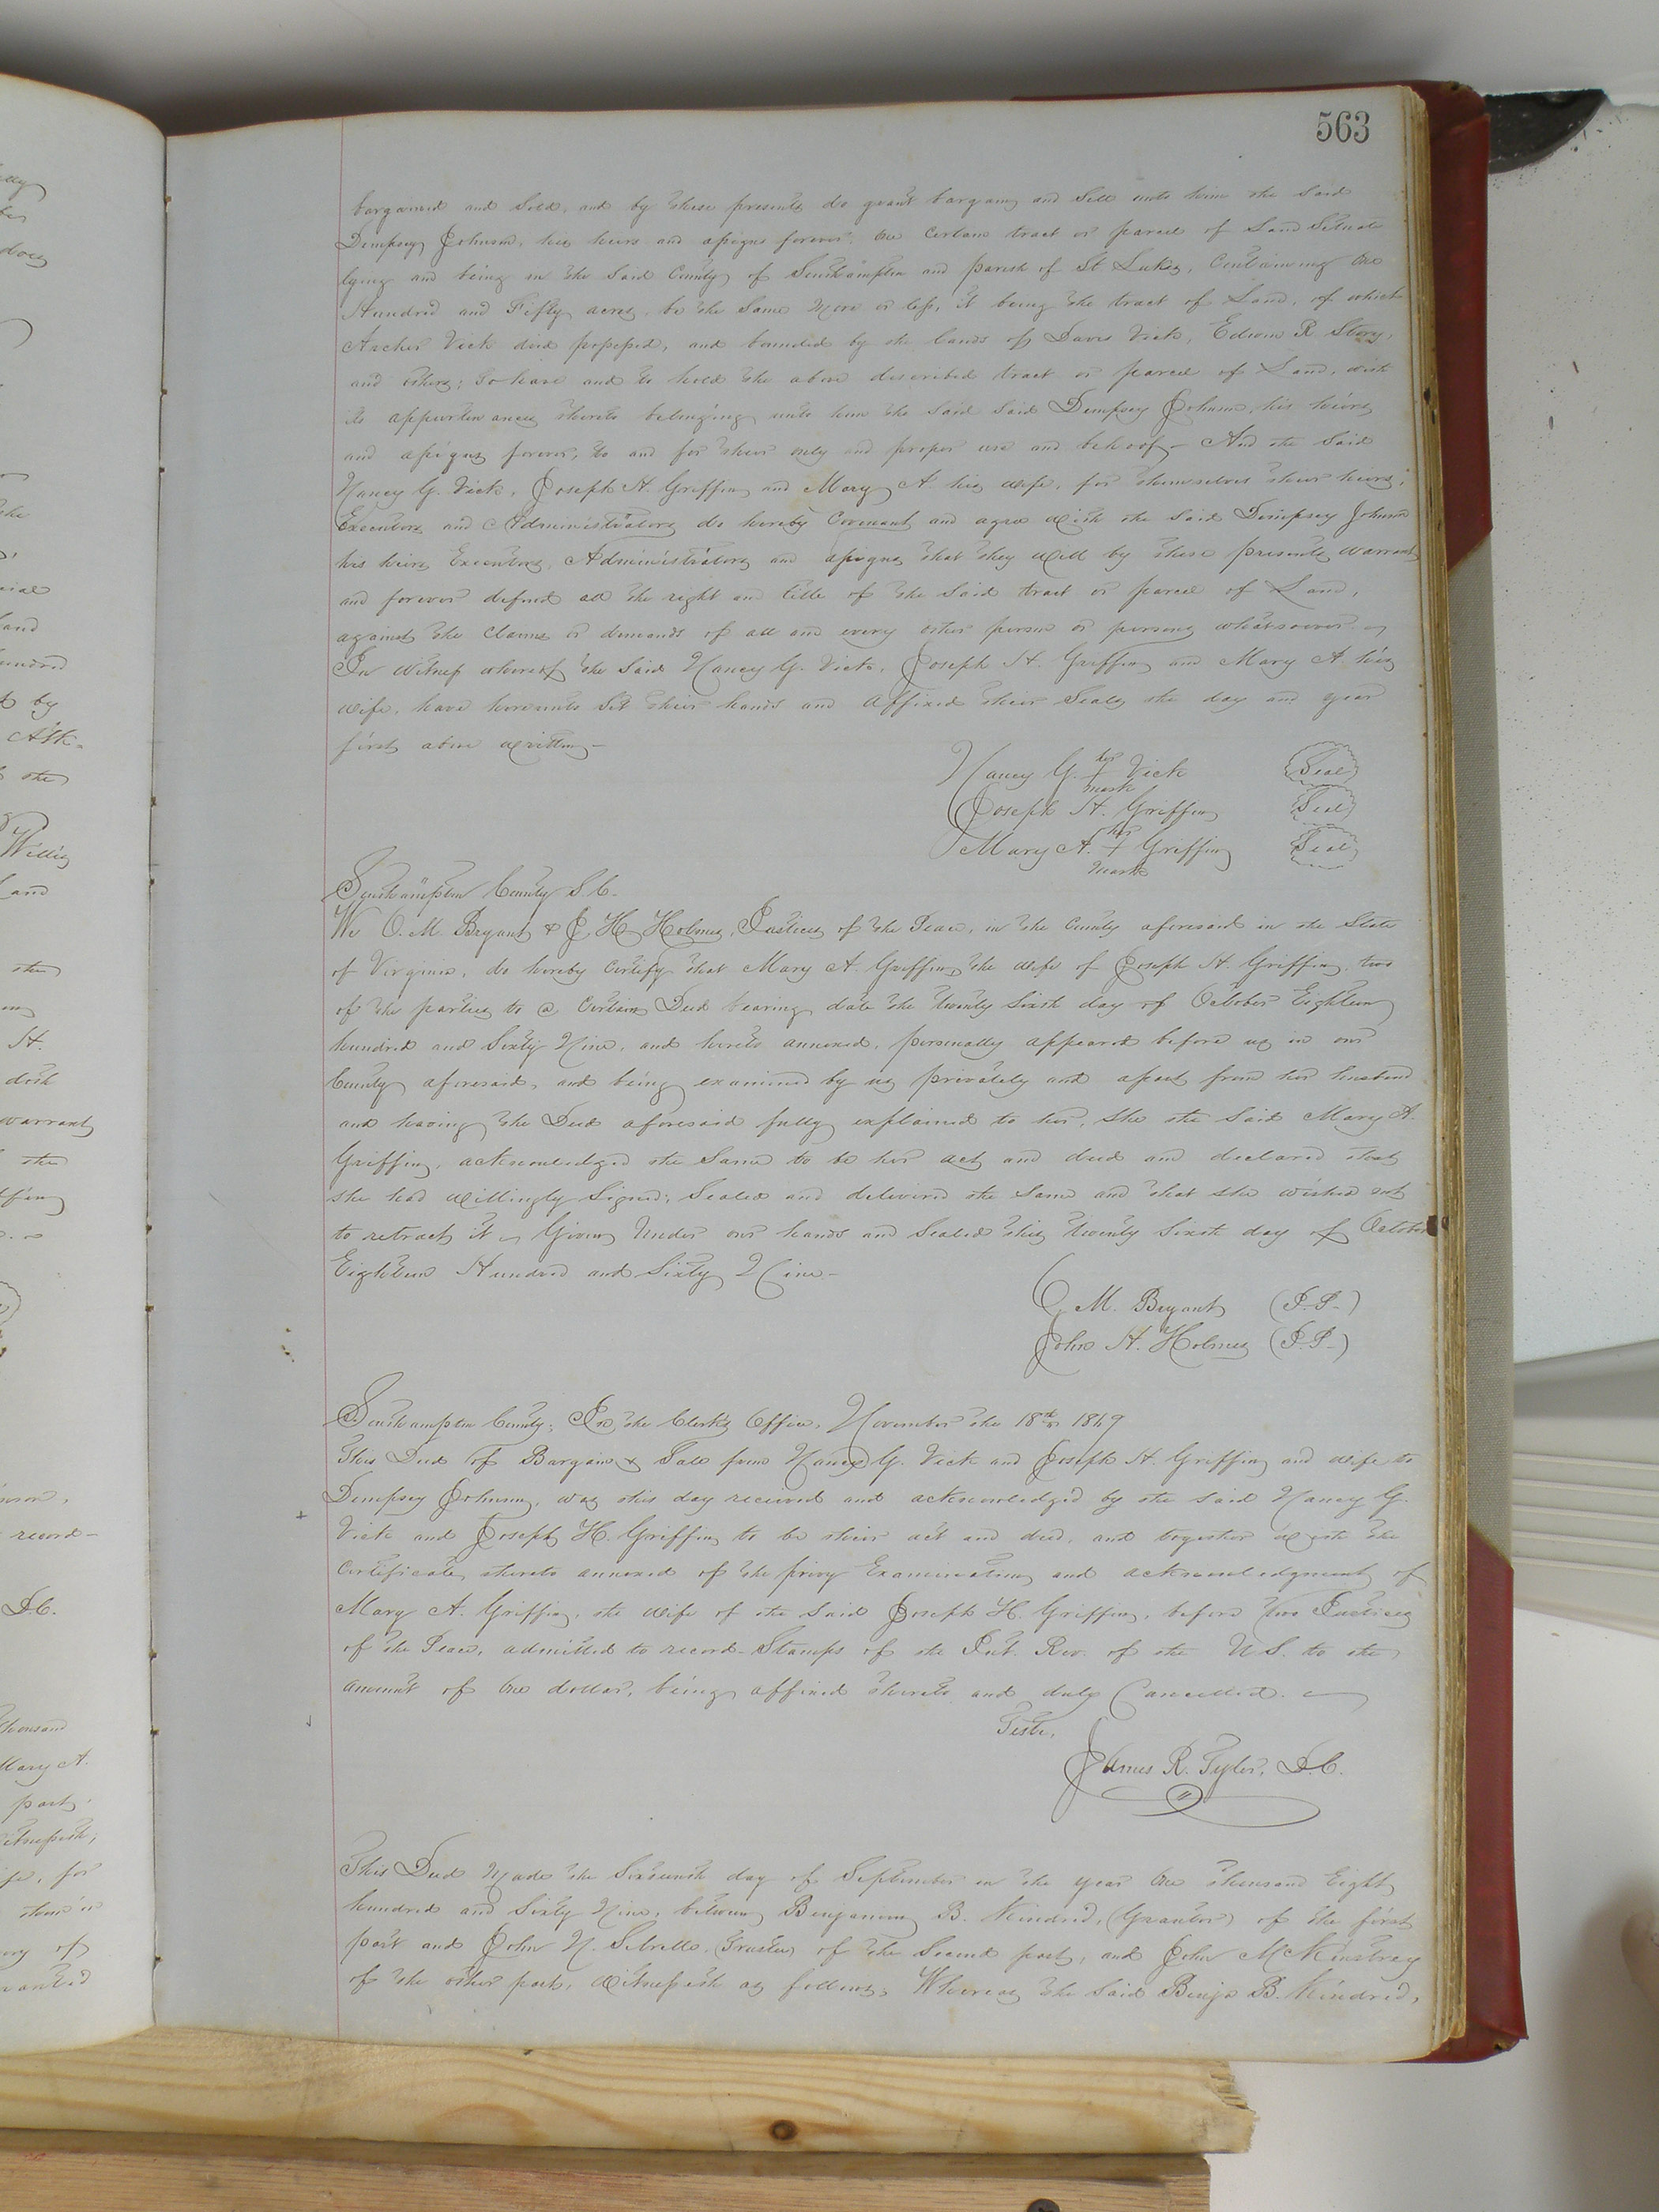 563
bargained and sold, and by these presents do grant bargain and sell unto him the said
Dempsey Johnson, his heirs and assigns forever, one certain tract or parcel of Land Situate
lying and being in the said County of Southampton and parish of St Lukes, Containing One
Hundred and Fifty acres, be the same more or less, it being the tract of Land, of which
Archer Vick died possessed, and bounded by the lands of Davis Vick, Edwin R Story,
and others; to have and to hold the above described tract or parcel of Land, with
its appurtenances thereto belonging unto him the said said Dempsey Johnson, his heirs
and assigns forever, to and for their only and proper use and behoof - And the said
Nancy G. Vick, Joseph H. Griffin and Mary A. his wife, for themselves their heirs,
Executors and Administrators do hereby Covenant and agree with the said Dempsey Johnson
his heirs Executors, Administrators and assigns that they will by these presents warrant
and forever defend all the right and title of the said tract or parcel of Land,
against the claims or demands of all and every other person or persons whatsoever.
In witness whereof the said Nancy G. Vick, Joseph H. Griffin and Mary A. his
wife, have hereunto set their hands and affixed their Seals the day and year
first above written -
Nancy G. her + mark Vick (Seal)
Joseph H. Griffin (Seal)
Mary A. her + mark Griffin (Seal)
Southampton County S.C.
We O. M. Bryant & J. H. Holmes, Justices of the Peace, in the County aforesaid in the State
of Virginia, do hereby certify that Mary A. Griffin, the wife of Joseph H. Griffin, two
of the parties to a certain Deed bearing date the twenty sixth day of October Eighteen
hundred and Sixty Nine, and hereto annexed, personally appeared before us in our
County aforesaid, and being examined by us privately and apart from her husband
and having the Deed aforesaid fully explained to her, she the said Mary A.
Griffin, acknowledged the same to be her act and deed and declared that
she had willingly Signed, Sealed and delivered the same and that she wished not
to retract it - Given under our hands and Seals this twenty sixth day of October
Eighteen Hundred and Sixty Nine -
O. M. Bryant (J.P.)
John H. Holmes (J.P.)
Southampton County; In the Clerk's Office, November the 18th 1869
This Deed of Bargain & Sale from Nancy G. Vick and Joseph H. Griffin and wife to
Dempsey Johnson, was this day received and acknowledged by the said Nancy G.
Vick and Joseph H. Griffin to be their act and deed, and together with the
Certificate thereto annexed of the privy Examination and acknowledgment of
Mary A. Griffin, the wife of the said Joseph H. Griffin, before two Justices
of the Peace, admitted to record - Stamps of the Int. Rev. of the U.S. to the
amount of One dollar, being affixed thereto and duly Cancelled.
Teste,
James R. Tyler, D.C.
This Deed Made the Sixteenth day of September in the year One thousand Eight
hundred and Sixty Nine, between Benjamin B. Kindred, (Grantor) of the first
part and John N. Sebrell (Trustee) of the Second part, and John McKinstrey
of the other part, witnesseth as follows; Whereas the said Benja B. Kindred,